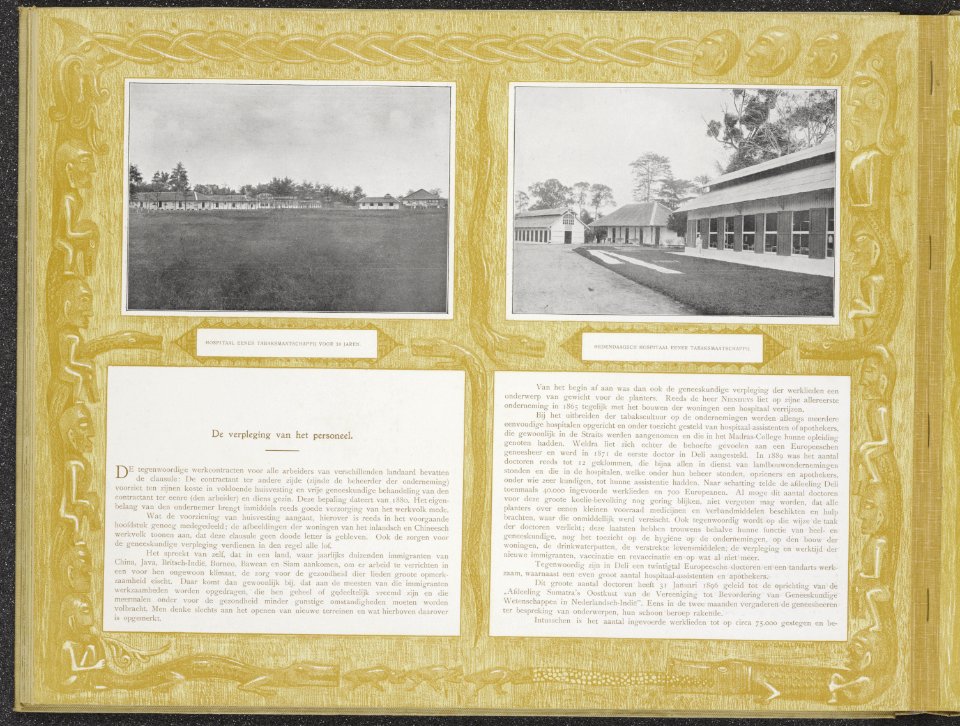 HOSPITAAL EENER TABAKSMAATSCHAPPIJ VOOR 30 JAREN.
De verpleging van het personeel.
DE tegenwoordige werkcontracten voor alle arbeiders van verschillenden landaard bevatten
de clausule: De contractant ter andere zijde (zijnde de beheerder der onderneming)
voorziet ten zijnen koste in voldoende huisvesting en vrije geneeskundige behandeling van den
contractant ter eenre (den arbeider) en diens gezin. Deze bepaling dateert van 1880. Het eigen-
belang van den ondernemer brengt inmiddels reeds goede verzorging van het werkvolk mede.
Wat de voorziening van huisvesting aangaat, hierover is reeds in het voorgaande
hoofdstuk genoeg medegedeeld; de afbeeldingen der woningen van het inlandsch en Chineesch
werkvolk toonen aan, dat deze clausule geen doode letter is gebleven. Ook de zorgen voor
de geneeskundige verpleging verdienen in den regel alle lof.
Het spreekt van zelf, dat in een land, waar jaarlijks duizenden immigranten van
China, Java, Britsch-Indië, Borneo, Bawean en Siam aankomen, om er arbeid te verrichten in
een voor hen ongewoon klimaat, de zorg voor de gezondheid dier lieden groote opmerk-
zaamheid eischt. Daar komt dan gewoonlijk bij, dat aan de meesten van die immigranten
werkzaamheden worden opgedragen, die hen geheel of gedeeltelijk vreemd zijn en die
meermalen onder voor de gezondheid minder gunstige omstandigheden moeten worden
volbracht. Men denke slechts aan het openen van nieuwe terreinen en wat hierboven daarover
is opgemerkt.
HEDENDAAGSCH HOSPITAAL EENER TABAKSMAATSCHAPPIJ.
Van het begin af aan was dan ook de geneeskundige verpleging der werklieden een
onderwerp van gewicht voor de planters. Reeds de heer NIENHUYS liet op zijne allereerste
onderneming in 1865 tegelijk met het bouwen der woningen een hospitaal verrijzen.
Bij het uitbreiden der tabakscultuur op de ondernemingen werden allengs meerdere
eenvoudige hospitalen opgericht en onder toezicht gesteld van hospitaal-assistenten of apothekers,
die gewoonlijk in de Straits werden aangenomen en die in het Madras-College hunne opleiding
genoten hadden. Weldra liet zich echter de behoefte gevoelen aan een Europeeschen
geneesheer en werd in 1871 de eerste doctor in Deli aangesteld. In 1889 was het aantal
doctoren reeds tot 12 geklommen, die bijna allen in dienst van landbouwondernemingen
stonden en die in de hospitalen, welke onder hun beheer stonden, opzieners en apothekers,
onder wie zeer kundigen, tot hunne assistentie hadden. Naar schatting telde de afdeeling Deli
toenmaals 40.000 ingevoerde werklieden en 700 Europeanen. Al moge dit aantal doctoren
voor deze groote koelie-bevolking nog gering blijken, niet vergeten mag worden, dat alle
planters over eenen kleinen voorraad medicijnen en verbandmiddelen beschikten en hulp
brachten, waar die onmiddellijk werd vereischt. Ook tegenwoordig wordt op die wijze de taak
der doctoren verlicht; deze laatsten hebben trouwens behalve hunne functie van heel- en
geneeskundige, nog het toezicht op de hygiëne op de ondernemingen, op den bouw der
woningen, de drinkwaterputten, de verstrekte levensmiddelen; de verpleging en werktijd der
nieuwe immigranten, vaccinatie en revaccinatie en op wat al niet meer.
Tegenwoordig zijn in Deli een twintigtal Europeesche doctoren en een tandarts werk-
zaam, waarnaast een even groot aantal hospitaal-assistenten en apothekers.
Dit groote aantal doctoren heeft 31 Januari 1896 geleid tot de oprichting van de
„Afdeeling Sumatra's Oostkust van de Vereeniging tot Bevordering van Geneeskundige
Wetenschappen in Nederlandsch-Indië". Eens in de twee maanden vergaderen de geneesheeren
ter bespreking van onderwerpen, hun schoon beroep rakende.
Intusschen is het aantal ingevoerde werklieden tot op circa 75.000 gestegen en be-